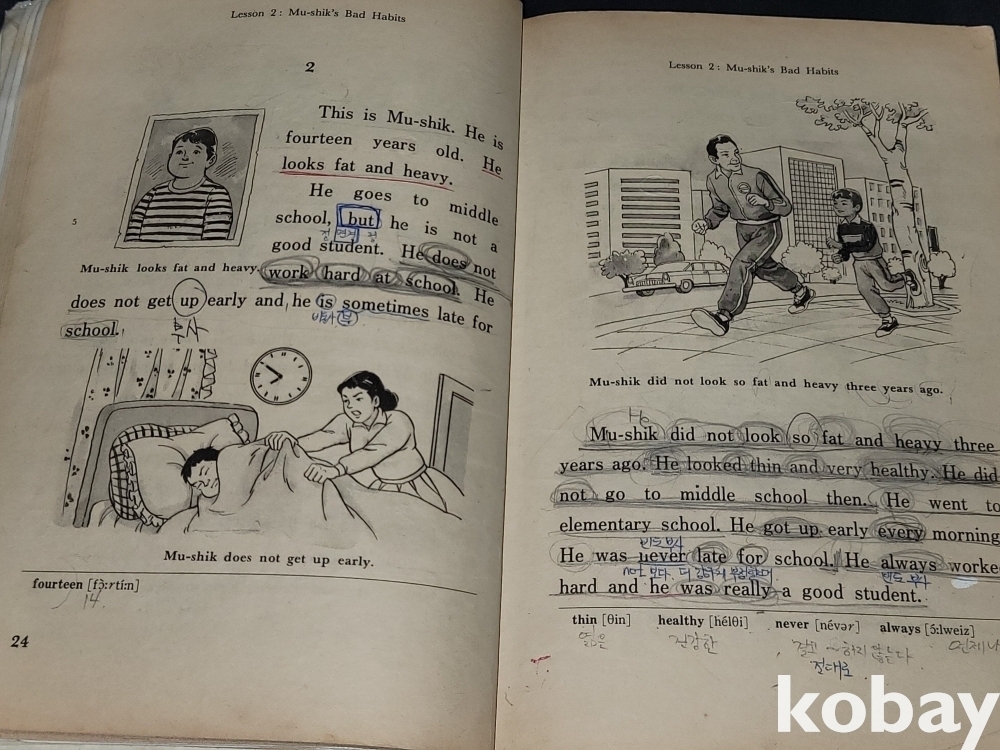 Lesson 2: Mu-shik's Bad Habits
2
This is Mu-shik. He is
fourteen years old. He
looks fat and heavy.
He goes to middle
school, but he is not a
good student. He does not
5
Mu-shik looks fat and heavy.
work hard at school. He
does not get up early and he is sometimes late for
school.
Mu-shik does not get up early.
fourteen [fɔ̀ːrtíːn]
14.
24
Lesson 2: Mu-shik's Bad Habits
Mu-shik did not look so fat and heavy three years ago.
He
Mu-shik did not look so fat and heavy three
years ago. He looked thin and very healthy. He did
not go to middle school then. He went to
elementary school. He got up early every morning
빈도부사
He was never late for school. He always worke
not 보다 더 강하게
빈도 부사
hard and he was really a good student.
thin [θin] healthy [hélθi] never [névər] always [ɔ́ːlweiz]
얇은 건강한 결코 ~하지 않는다 언제나
절대로
kobay